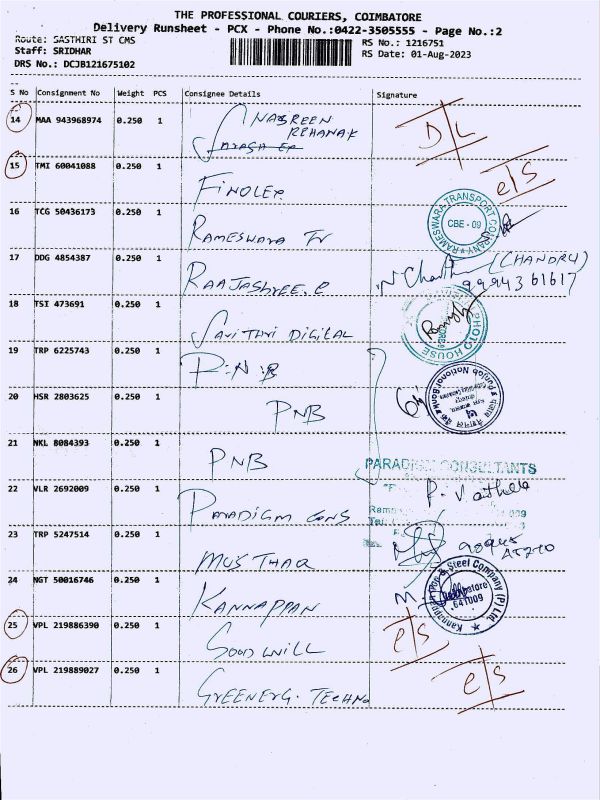 THE PROFESSIONAL COURIERS, COIMBATORE
Delivery Runsheet - PCX - Phone No.:0422-3505555 - Page No.:2
Route: SASTHIRI ST CMS
RS No.: 1216751
Staff: SRIDHAR
RS Date: 01-Aug-2023
DRS No.: DCJB121675102
S No Consignment No Weight PCS Consignee Details Signature
14 MAA 943968974 0.250 1 NASREEN
REHANAK
D/L
15 TMI 60041088 0.250 1 FINOLEX e/s
16 TCG 50436173 0.250 1 RAMESWARA Tr
RAMESWARA TRANSPORT COMPANY
CBE - 09
17 DDG 4854387 0.250 1 RAAJASHREE.E (CHANDRU)
9994361617
18 TSI 473691 0.250 1 SAVITHRI DIGITAL
PHOTO HOUSE
19 TRP 6225743 0.250 1 P.N.B
20 HSR 2803625 0.250 1 PNB
Punjab National Bank
21 NKL 8084393 0.250 1 PNB
PARADIGM CONSULTANTS
22 VLR 2692009 0.250 1 PARADIGM CONS
23 TRP 5247514 0.250 1 MUSTHAQ
24 NGT 50016746 0.250 1 KANNAPPAN
Kannappan Iron & Steel Company (P) Ltd.
641009
25 VPL 219886390 0.250 1 GOODWILL e/s
26 VPL 219889027 0.250 1 GREENERG. TECHNO e/s